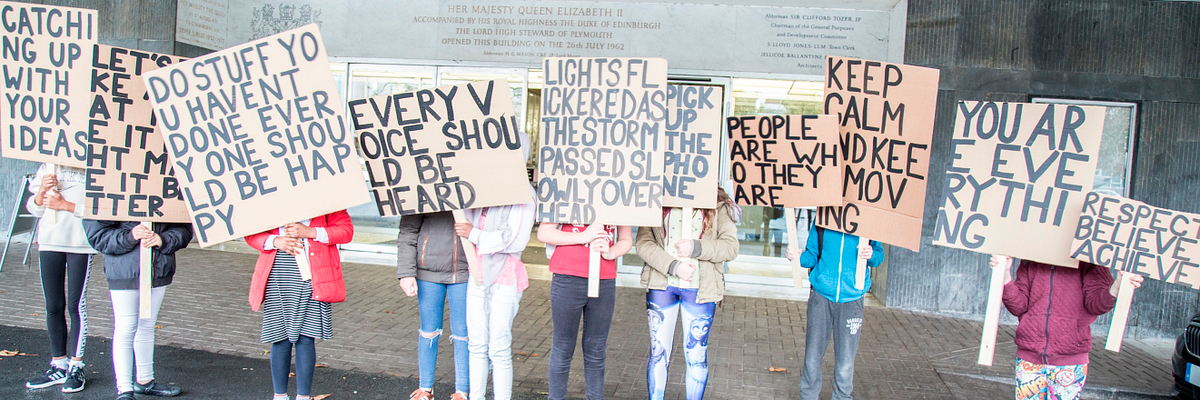 HER MAJESTY QUEEN ELIZABETH II
ACCOMPANIED BY HIS ROYAL HIGHNESS THE DUKE OF EDINBURGH
THE LORD HIGH STEWARD OF PLYMOUTH
OPENED THIS BUILDING ON THE 26th JULY 1962
Alderman SIR CLIFFORD TOZER JP
Chairman of the General Purposes
and Development Committee
S LLOYD JONES LLM Town Clerk
JELLICOE BALLANTINE
Architects
CATCHI
NG UP
WITH
YOUR
IDEAS
LET'S
KE
AT M
E IT
HT M
E IT B
TTER
DO STUFF YO
U HAVENT
DONE EVER
Y ONE SHOU
LD BE HAP
PY
EVERY V
OICE SHOU
LD BE
HEARD
LIGHTS FL
ICKERED AS
THE STORM
PASSED SL
OWLY OVER
HEAD
PICK
UP
THE
PHO
NE
PEOPLE
ARE WH
O THEY
ARE
KEEP
CALM
ND KEE
MOV
ING
YOU AR
E EVE
RYTHI
NG
RESPECT
BELIEVE
ACHIEVE